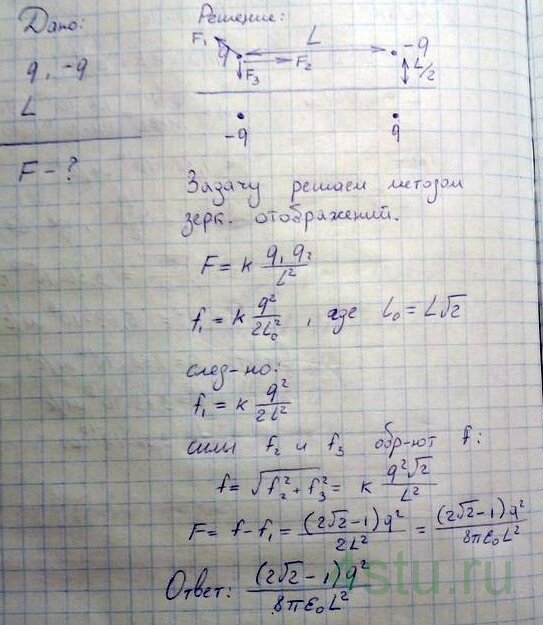 Дано:
q, -q
L
F - ?
Решение:
F₁ q L -q
F₃ F₂ L/2
-q q
Задачу решаем методом
зерк. отображений.
F = k q₁ q₂ / L²
f₁ = k q² / 2L₀² , где L₀ = L√2
след-но:
f₁ = k q² / 2L²
силы f₂ и f₃ обр-ют f:
f = √(f₂² + f₃²) = k q²√2 / L²
F = f - f₁ = (2√2-1)q² / 2L² = (2√2-1)q² / 8πε₀L²
Ответ: (2√2-1)q² / 8πε₀L²
stu.ru